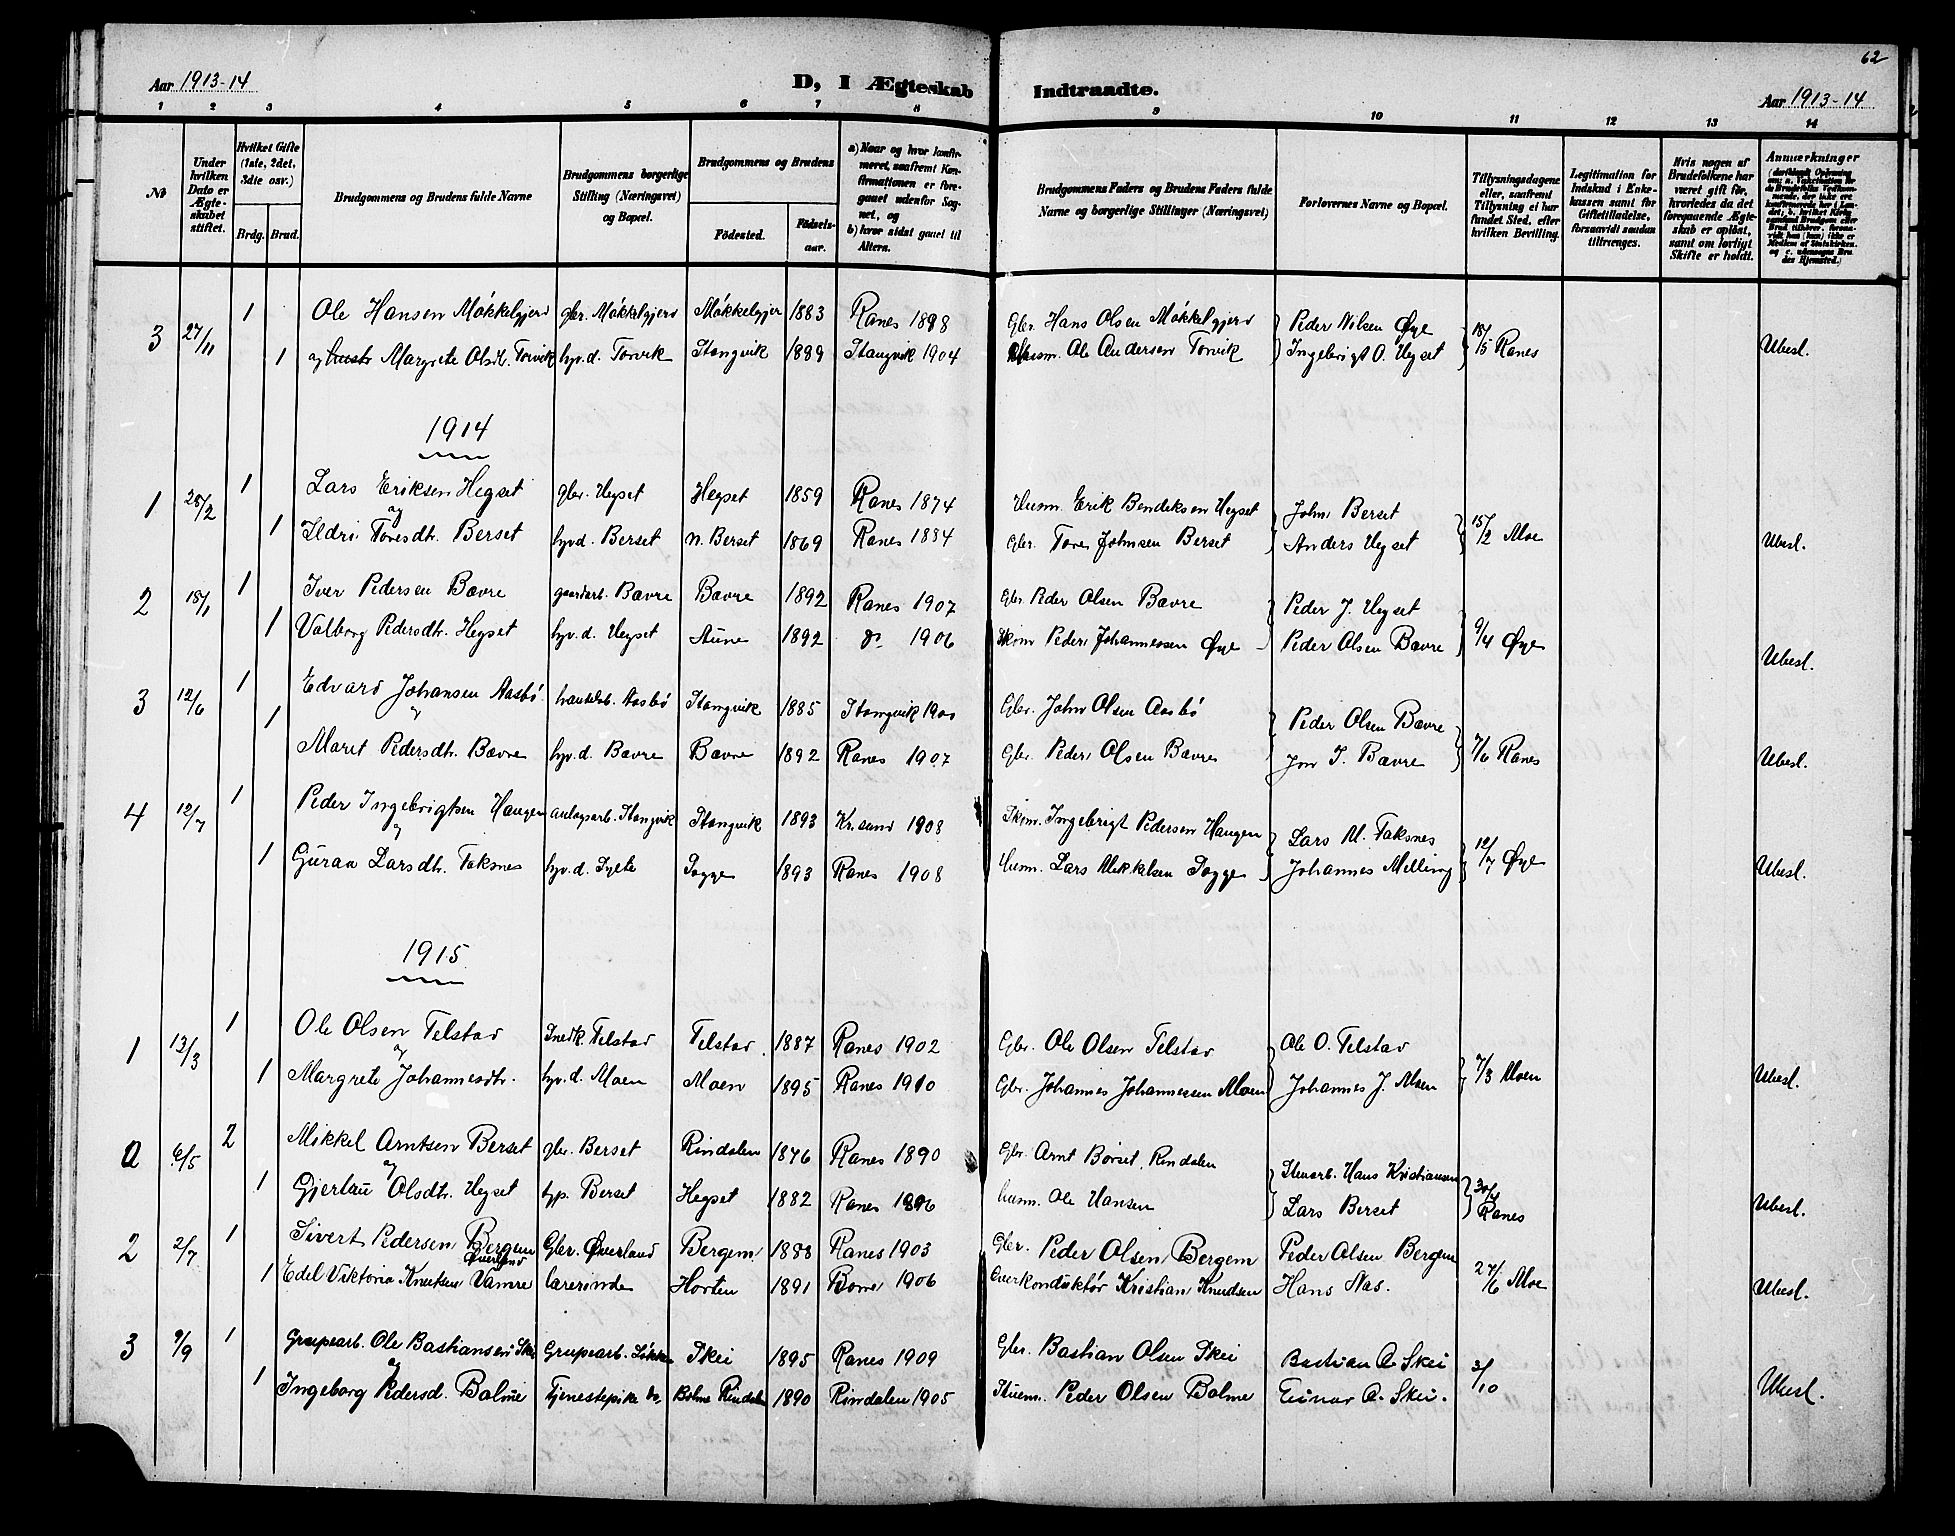 62
Aar 1913-14 D, I Ægteskab Indtraadte. Aar 1913-14
1 2 3 4 5 6 7 8 9 10 11 12 13 14
No
Under hvilken Dato er Ægteskabet stiftet.
Hvilket Gifte (1ste, 2det, 3die osv.)
Brdg. Brud.
Brudgommens og Brudens fulde Navne
Brudgommens borgerlige Stilling (Næringsvei) og Bopæl.
Brudgommens og Brudens
Fødested. Fødselsaar.
a) Naar og hvor konfirmeret, saafremt Konfirmationen er foregaaet udenfor Sognet, og
b) hvor sidst gaaet til Alters.
Brudgommens Faders og Brudens Faders fulde Navne og borgerlige Stillinger (Næringsvei)
Forlovernes Navne og Bopæl.
Tillysningsdagene eller, saafremt Tillysning ei har fundet Sted, efter hvilken Bevilling.
Legitimation for Indskud i Enkekassen samt for Giftetilladelse, forsaavidt saadan tiltrænges.
Hvis nogen af Brudefolkene har været gift før, hvorledes da det foregaaende Ægteskab er opløst, samt om lovligt Skifte er holdt.
Anmærkninger
3 27/11 1 Ole Hansen Møkkelgjerd gbr. Møkkelgjerd Møkkelgjer 1883 Ranes 1898 Gbr. Hans Olsen Møkkelgjerd Peder Nilsen Øye 18/5 Ranes Ubesl.
1 og Margrete Olsdt. Torvik hyv.d. Torvik Stangvik 1889 Stangvik 1904 Husm. Ole Andersen Torvik Ingebrigt O. Hegset
1914
1 28/2 1 Lars Eriksen Hegset gbr. Hegset Hegset 1859 Ranes 1874 Husm. Erik Bendiksen Hegset John Berset 15/2 Moe Ubesl.
og
1 Ildri Toresdt. Berset hyvd. Berset n. Berset 1869 Ranes 1884 Gbr. Tore Johnsen Berset Anders Hegset
2 18/1 1 Iver Pedersen Bævre gaardarb. Bævre Bævre 1892 Ranes 1907 Gbr. Peder Olsen Bævre Peder J. Hegset 9/4 Øye Ubesl.
1 Valborg Pedersdt. Hegset hyv.d. Hegset Aune 1892 do 1906 Peder Johannessen Øye Peder Olsen Bævre
3 12/6 1 Edvard Johansen Aasbø Aasbø Stangvik 1885 Stangvik 1900 Gbr. John Olsen Aasbø Peder Olsen Bævre 7/6 Ranes Ubesl.
og
1 Marit Pedersdt. Bævre hyv.d. Bævre Bævre 1892 Ranes 1907 Gbr. Peder Olsen Bævre Jon I. Bævre
4 12/7 1 Peder Ingebrigtsen Haugen anlægsarb. Stangvik Stangvik 1893 Kr.sund 1908 Skom. Ingebrigt Pedersen Haugen Lars M. Faksnes 12/7 Øye Ubesl.
og
1 Guraa Larsdt. Faksnes hyv.d. Sogge 1893 Ranes 1908 Husm. Lars Mikkelsen Sogge Johannes Melling
1915
1 13/3 1 Ole Olsen Telstad Snedk. Telstad Telstad 1887 Ranes 1902 Gbr. Ole Olsen Telstad Ole O. Telstad 7/3 Moen Ubesl.
og
1 Margrete Johannesdt. hyv.d. Moen Moen 1895 Ranes 1910 Gbr. Johannes Johannessen Moen Johannes J. Moen
a 6/5 2 Mikkel Arntsen Berset gbr. Berset Rindalen 1876 Ranes 1890 Gbr. Arnt Børset, Rindalen Hans Kristiansen 30/4 Ranes Ubesl.
og
1 Gjertau Olsdt. Hegset hyp. Berset Hegset 1882 Ranes 1896 husm. Ole Hansen Lars Berset
2 2/7 1 Sivert Pedersen Bergem Øverland Gbr. Øverland Bergem 1888 Ranes 1903 Gbr. Peder Olsen Bergem Peder Olsen Bergem 27/6 Moe Ubesl.
1 Edel Viktoria Knutsen Vamre lærerinde Horten 1891 Borre 1906 Overkonduktør Kristian Knudsen Hans Nas.
3 9/9 1 Grupearb. Ole Bastiansen Skei Grupearb. Løkken Skei 1895 Ranes 1909 Gbr. Bastian Olsen Skei Bastian O. Skei 3/10 Ubesl.
og
1 Ingeborg Pedersd. Bolme Tjenestepike Bolme Rindalen 1890 Rindalen 1905 Peder Olsen Bolme Einar O. Skei.